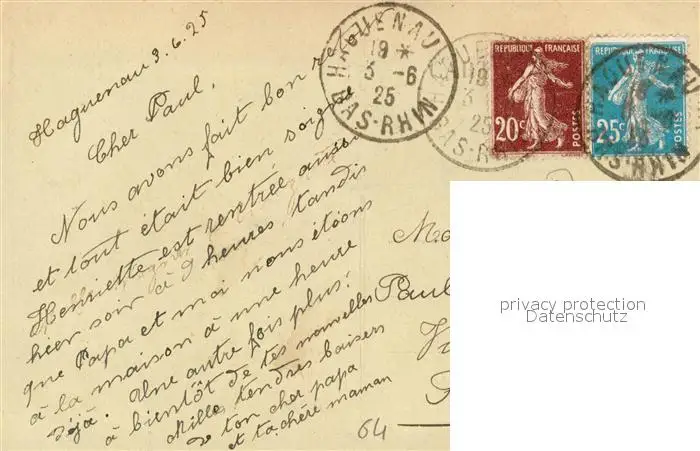 Haguenau 3.6.25
Cher Paul,
Nous avons fait bon re
et tout était bien soigné
Henriette est rentrée aussi
hier soir à 9 heures, tandis
que Papa et moi nous étions
à la maison à une heure
déjà. Une autre fois plus!
à bientôt de tes nouvelles
Mille tendres baisers
de ton cher papa
et ta chère maman
64
HAGUENAU
19 *
3 -6
25
BAS-RHIN
19
3
25
BAS-RH
REPUBLIQUE FRANÇAISE
20c
POSTES
REPUBLIQUE FRANÇAISE
25c
POSTES
HAGUENAU
S-RHIN
Mo
Paul
privacy protection
Datenschutz